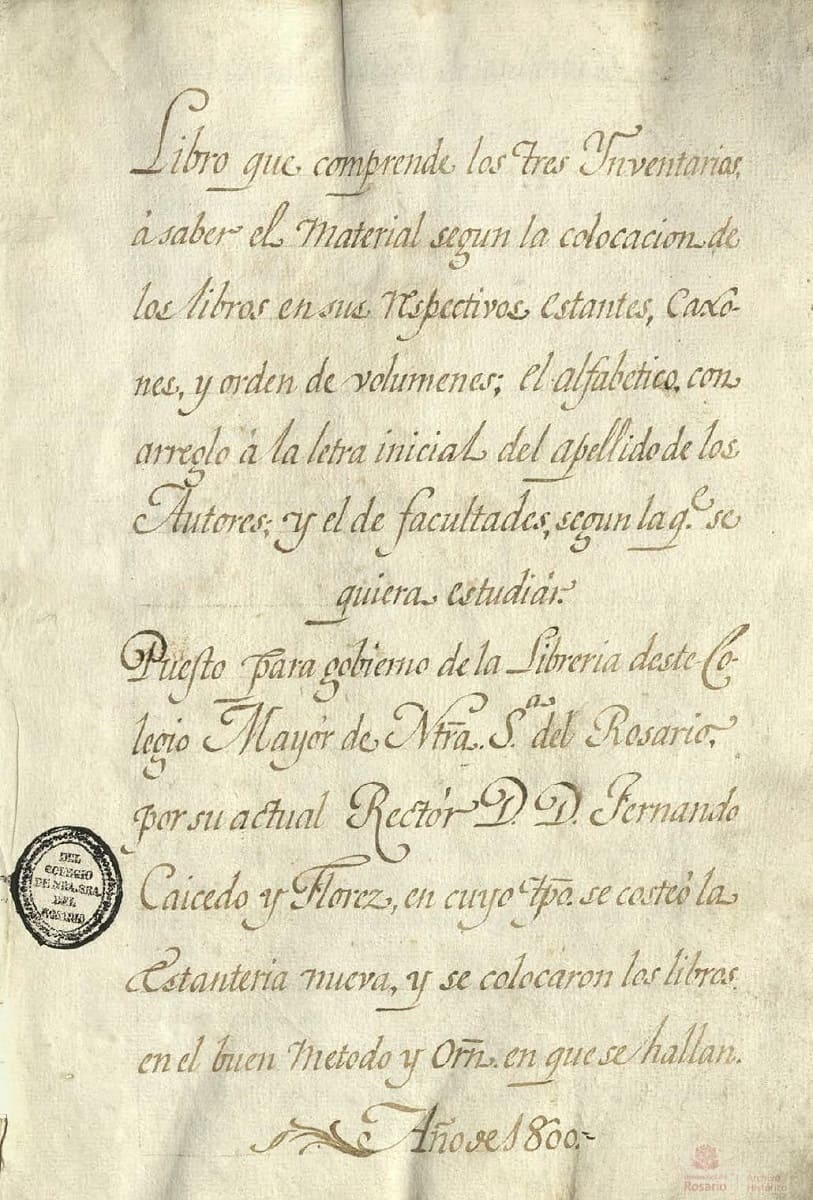 Libro que comprende los tres Ynventarios,
à saber el Material segun la colocacion de
los libros en sus respectivos estantes, Caxo-
nes, y orden de volumenes; el alfabetico, con
arreglo à la letra inicial del apellido de los
Autores; y el de facultades, segun la q.e se
quiera estudiár.
Puesto para gobierno de la Libreria deste Co-
legio Mayór de Ntra. S.ra del Rosario,
por su actual Rectór D. D. Fernando
Caicedo y Florez, en cuyo tpo. se costeó la
Estanteria nueva, y se colocaron los libros
en el buen Metodo y Orn. en que se hallan.
Año de 1800.-
DEL
COLEGIO
DE NRA. SRA.
DEL
ROSARIO
Universidad del
Rosario
Archivo
Histórico